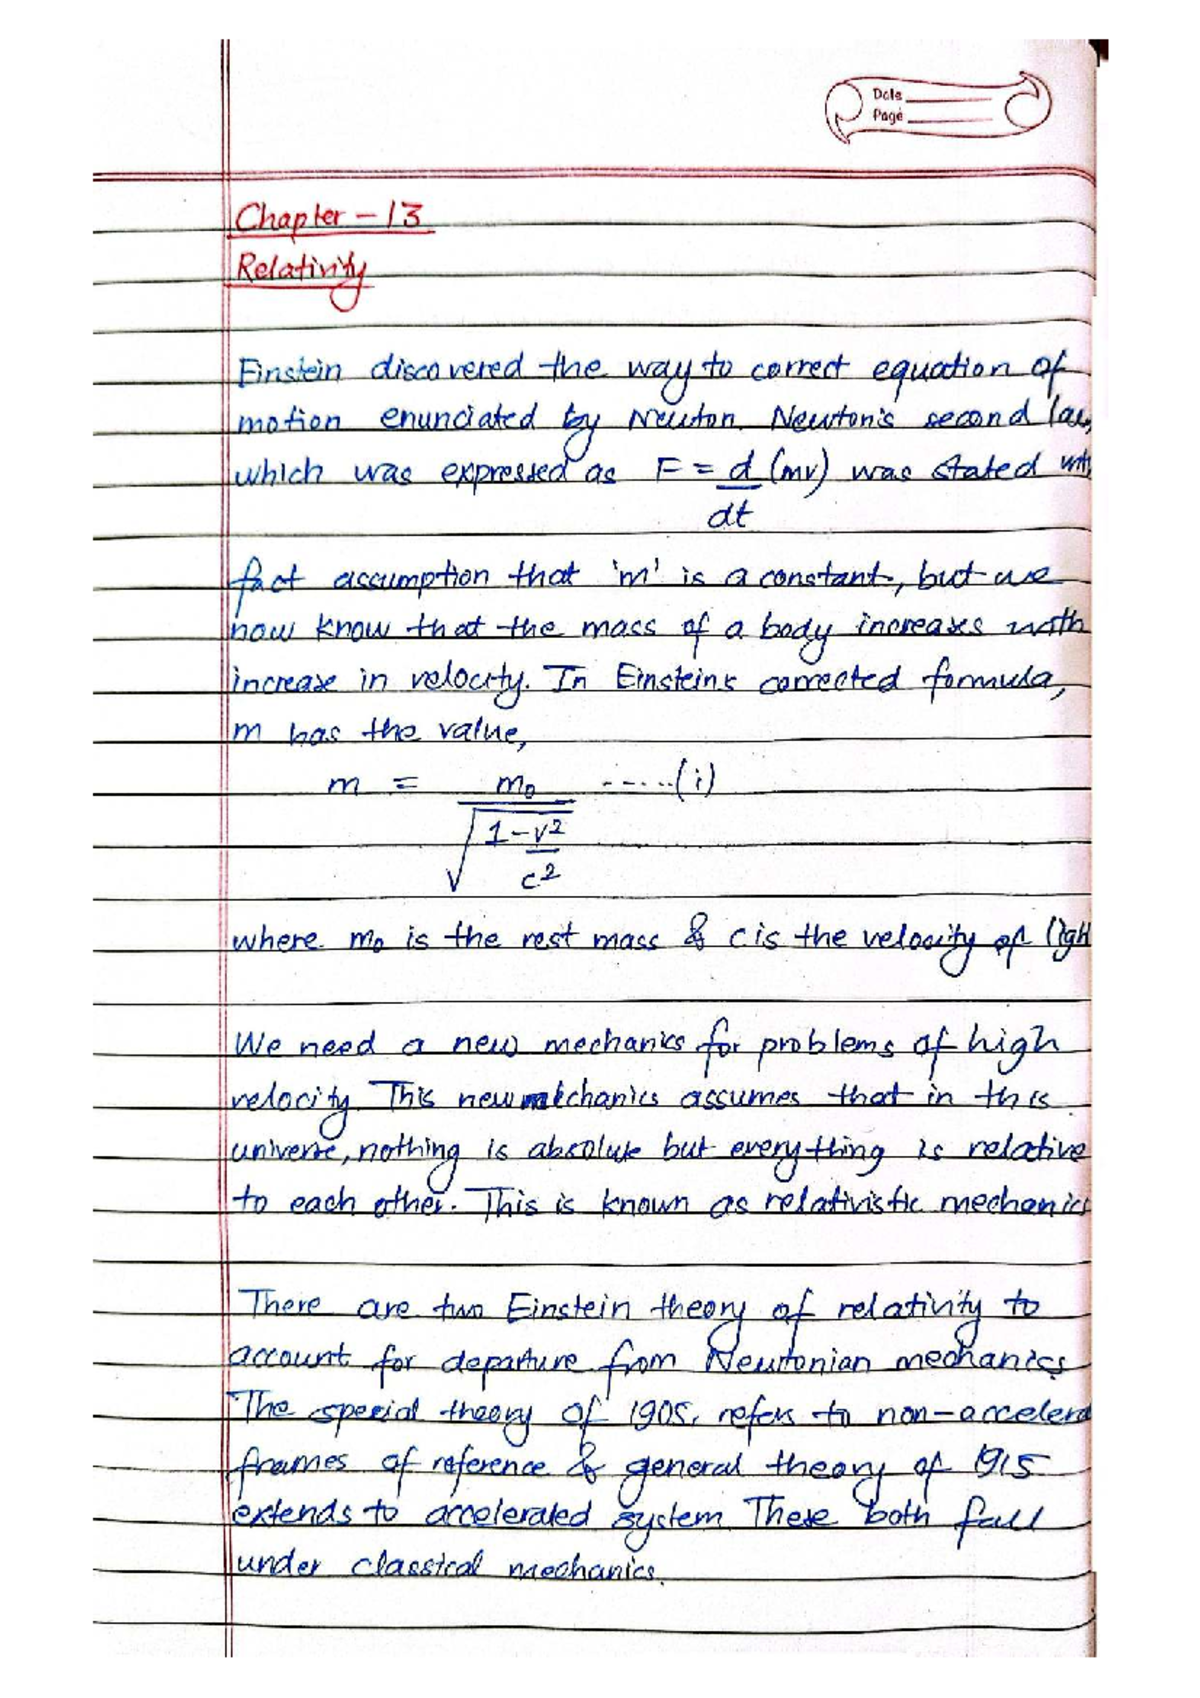 Date
Page
Chapter - 13
Relativity
Einstein discovered the way to correct equation of
motion enunciated by Newton. Newton's second law,
which was expressed as F = d/dt (mv) was stated with
fact assumption that 'm' is a constant, but we
now know that the mass of a body increases with
increase in velocity. In Einsteins corrected formula,
m has the value,
m = m₀ / √(1 - v²/c²) ------(i)
where m₀ is the rest mass & c is the velocity of light
We need a new mechanics for problems of high
velocity. This new mechanics assumes that in this
universe, nothing is absolute but everything is relative
to each other. This is known as relativistic mechanics
There are two Einstein theory of relativity to
account for departure from Newtonian mechanics
The special theory of 1905, refers to non-accelera
frames of reference & general theory of 1915
extends to accelerated system. These both fall
under classical mechanics.